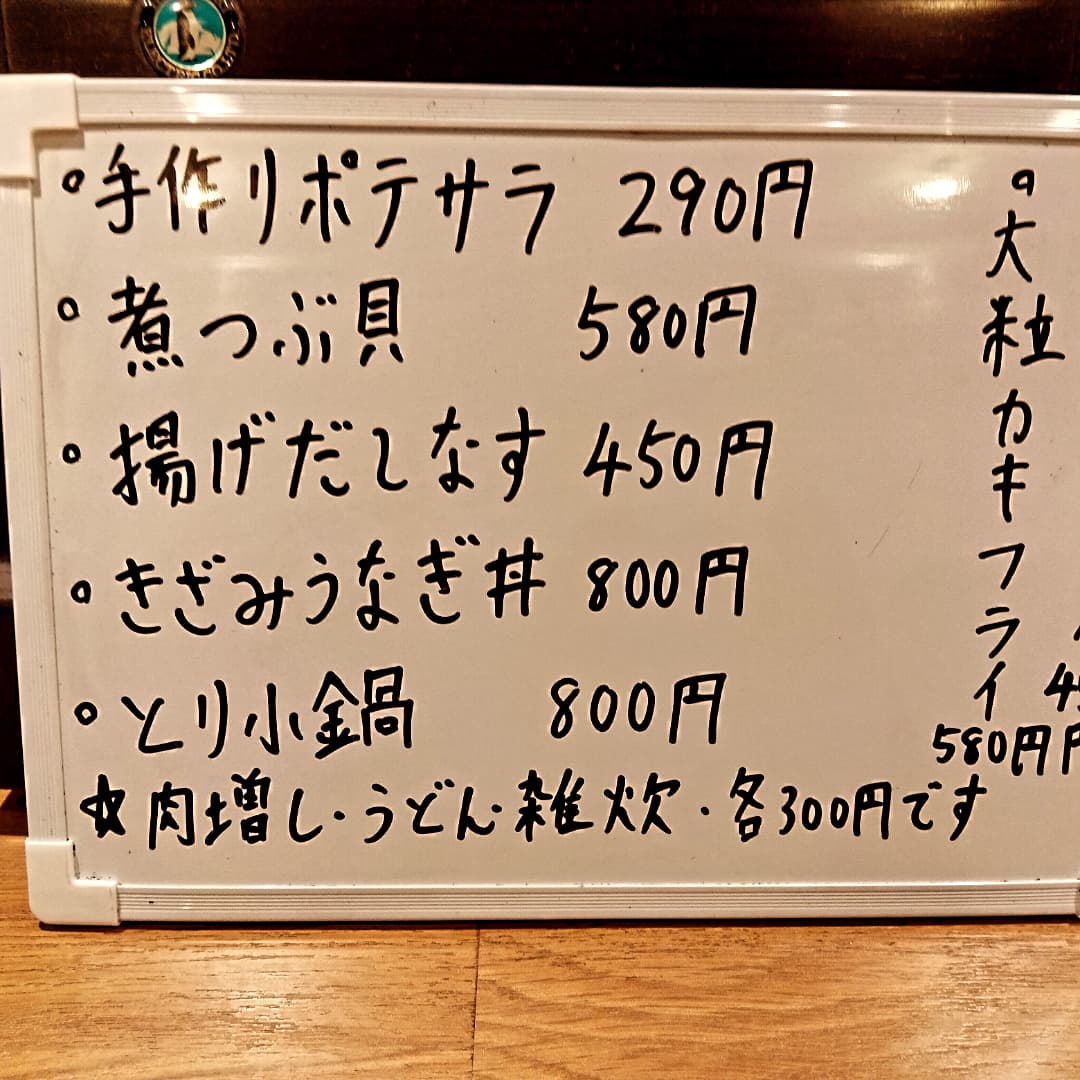 手作りポテサラ 290円
煮つぶ貝 580円
揚げだしなす 450円
きざみうなぎ丼 800円
とり小鍋 800円
☆肉増し・うどん・雑炊・各300円です
大粒カキフライ
580円